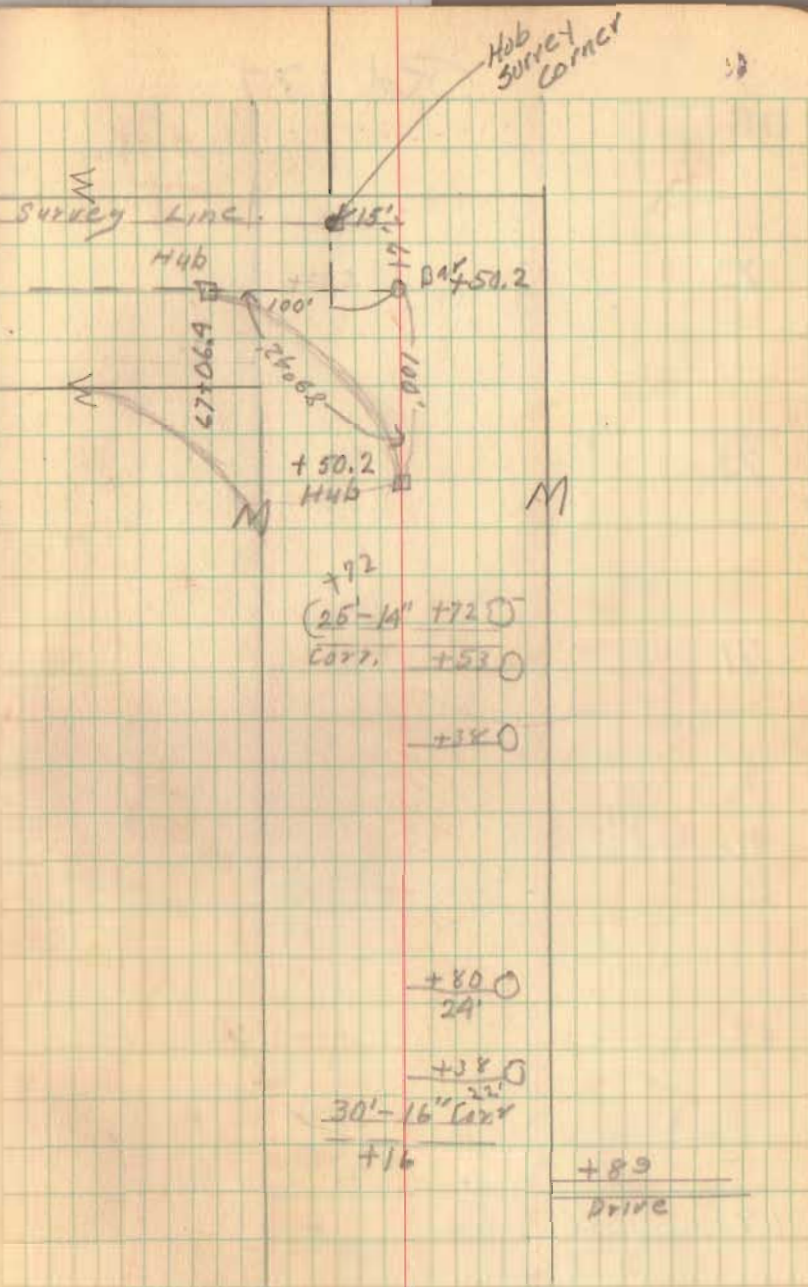 Hub
Survey
Corner
Survey Line.
15'
Hub
17
+50.2
100'
100'
67+06.4
+50.2
Hub
+72
(25'-14" +72
Corr. +53
+38
+80
24'
+38
22'
30'-16" Corr
+16
+89
Drive